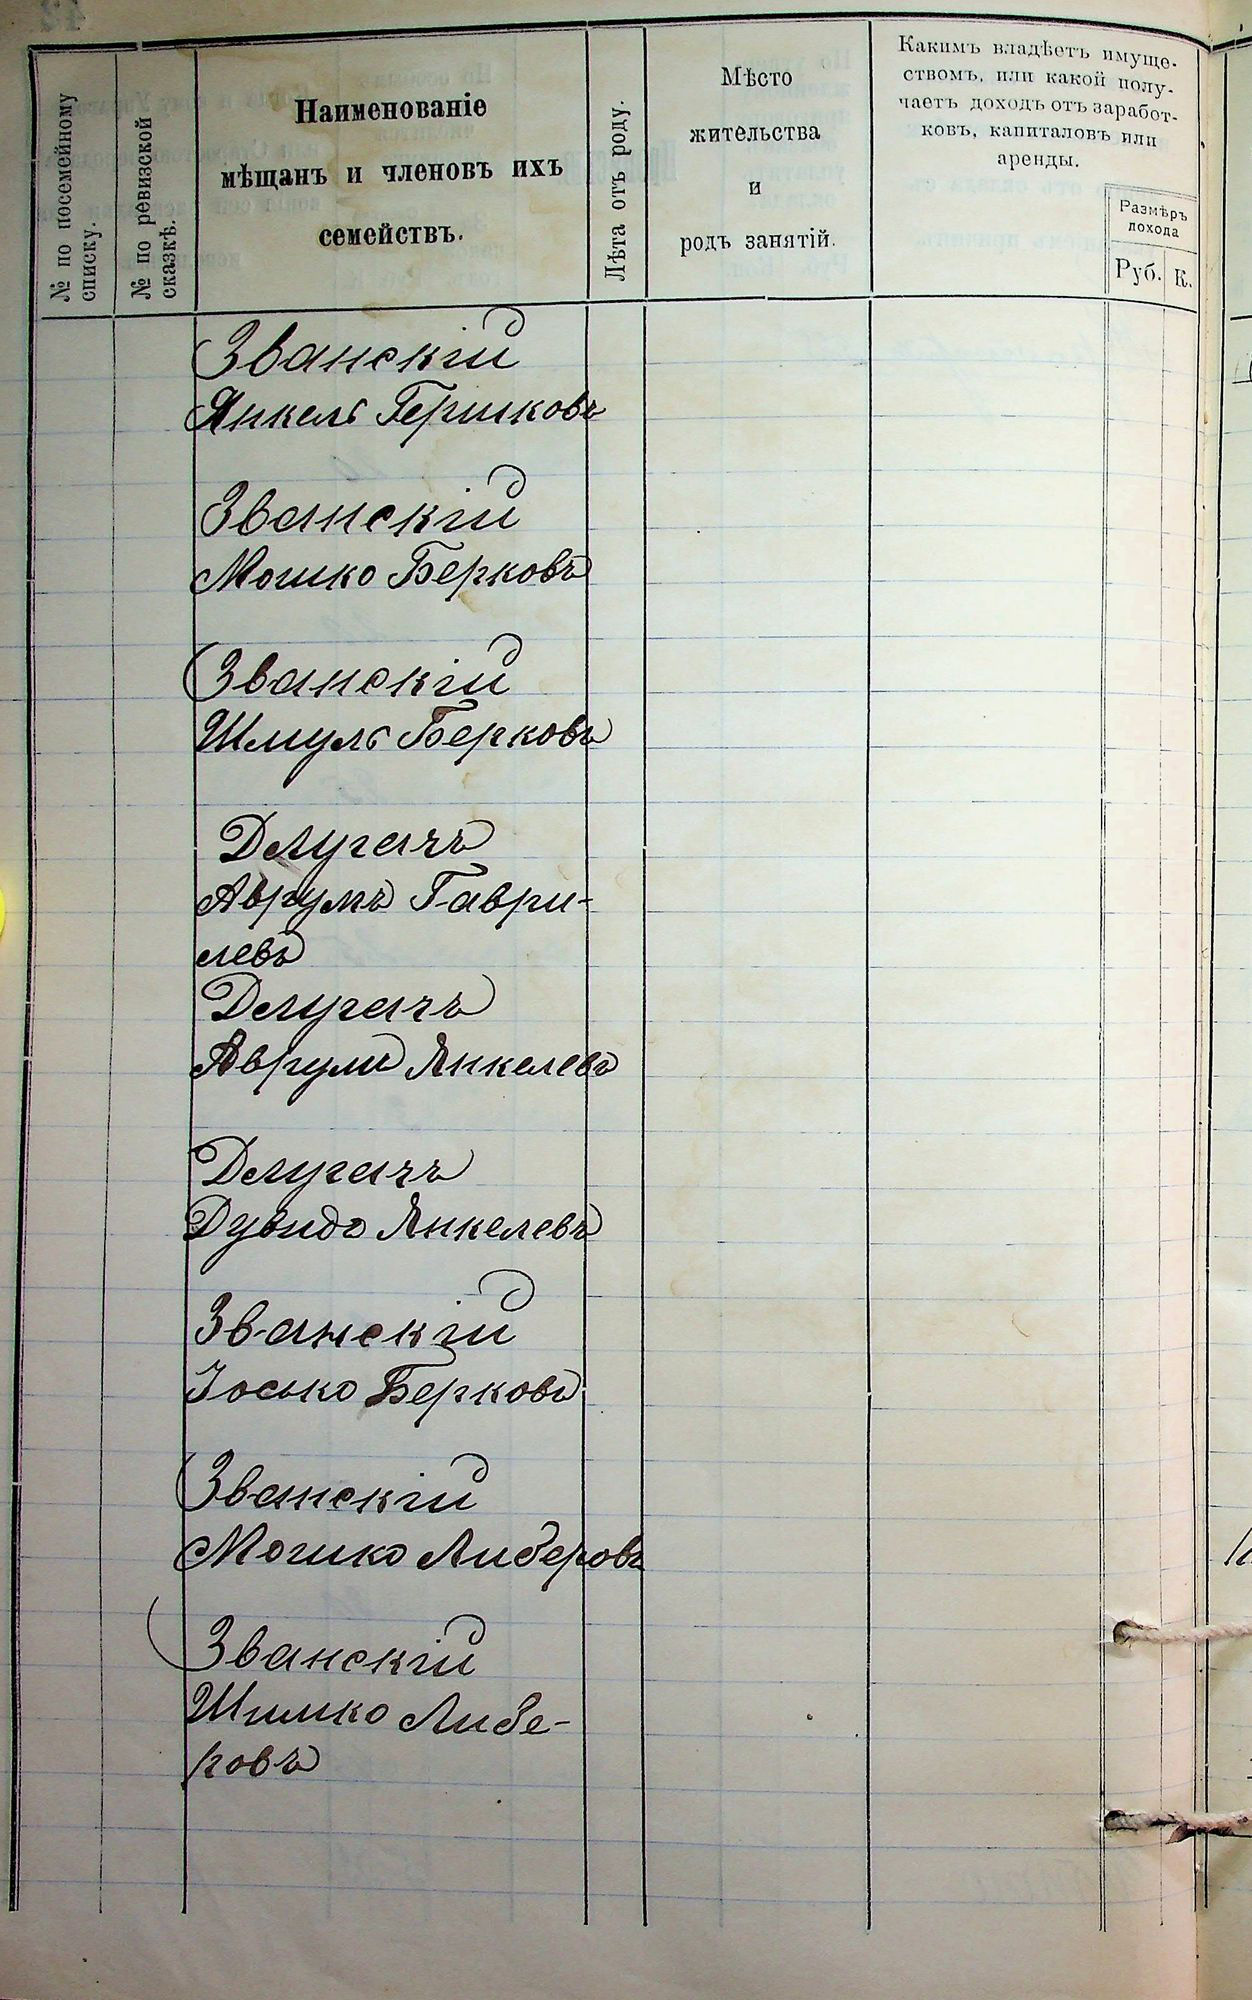 № по посемейному
списку.
№ по ревизской
сказкѣ.
Наименованіе
мѣщанъ и членовъ ихъ
семействъ.
Лѣта отъ роду.
Мѣсто
жительства
и
родъ занятій.
Какимъ владѣетъ имуще-
ствомъ, или какой полу-
чаетъ доходъ отъ заработ-
ковъ, капиталовъ или
аренды.
Размѣръ
дохода
Руб.
К.
Званскій
Янкель Гершковъ
Званскій
Мошко Берковъ
Званскій
Шмуль Берковъ
Длугачъ
Аврумъ Гаври-
левъ
Длугачъ
Аврумъ Янкелевъ
Длугачъ
Дувидъ Янкелевъ
Званскій
Іосько Берковъ
Званскій
Мошко Либеровъ
Званскій
Шимко Либе-
ровъ